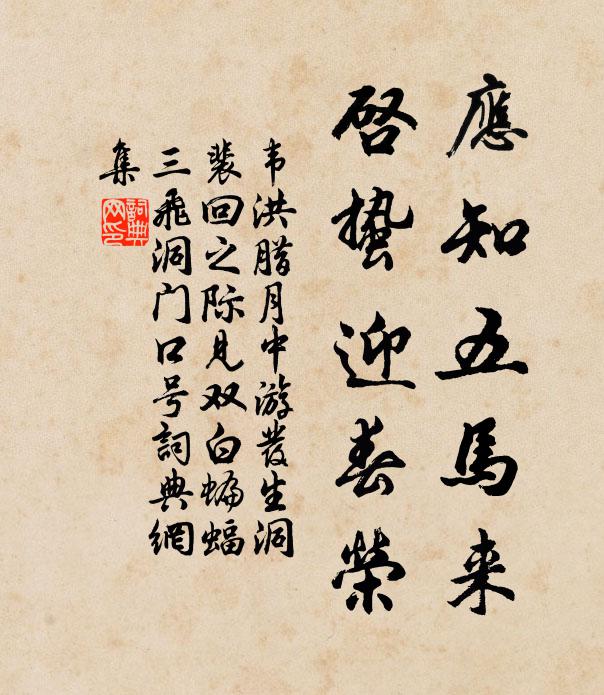 應知五馬来
啓蟄迎春榮
韦洪腊月中游發生洞
裴回之际见双白蝙蝠
三飛洞门口号詞典網
集
詞典
网印